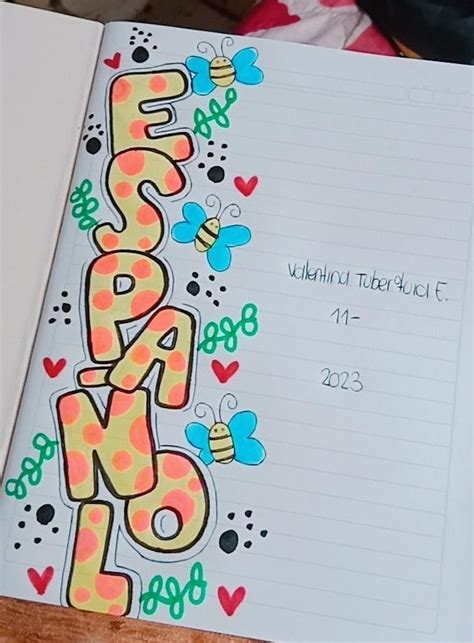 ESPAÑOL
Valentina Tuberquia E.
11-
2023